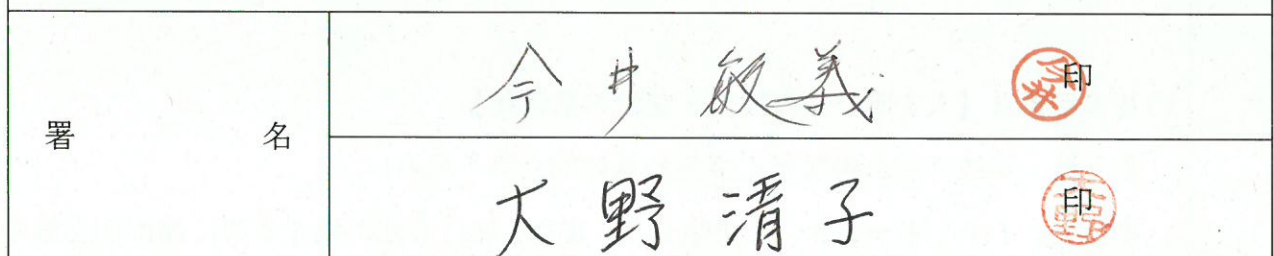 署名
今井敏義 印
大野清子 印